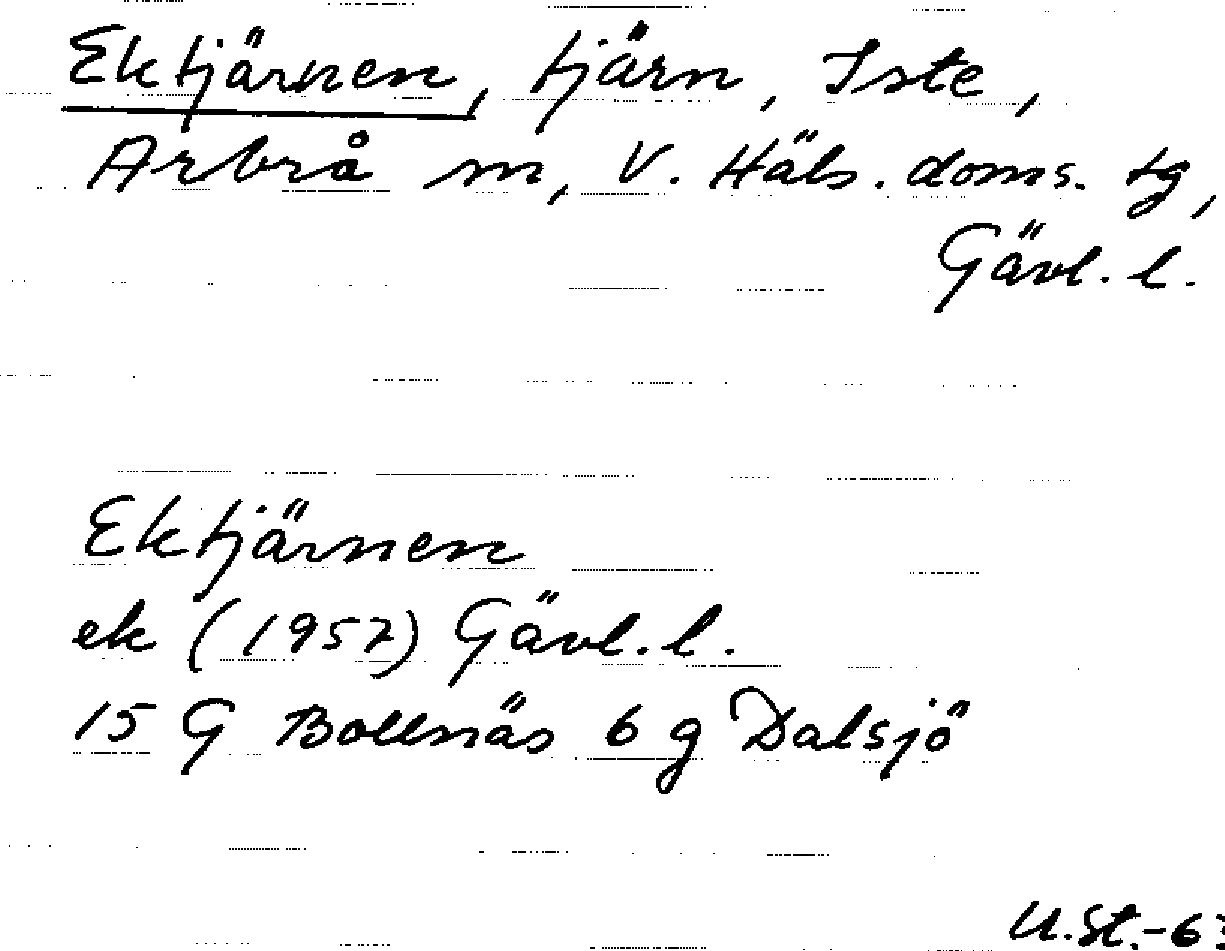 Ektjärnen, tjärn, Iste,
Arbrå sn, V. Häls. doms. tg,
Gävl. l.
Ektjärnen
ek (1957) Gävl. l.
15 G Bollnäs 6 g Dalsjö
U.St.-6